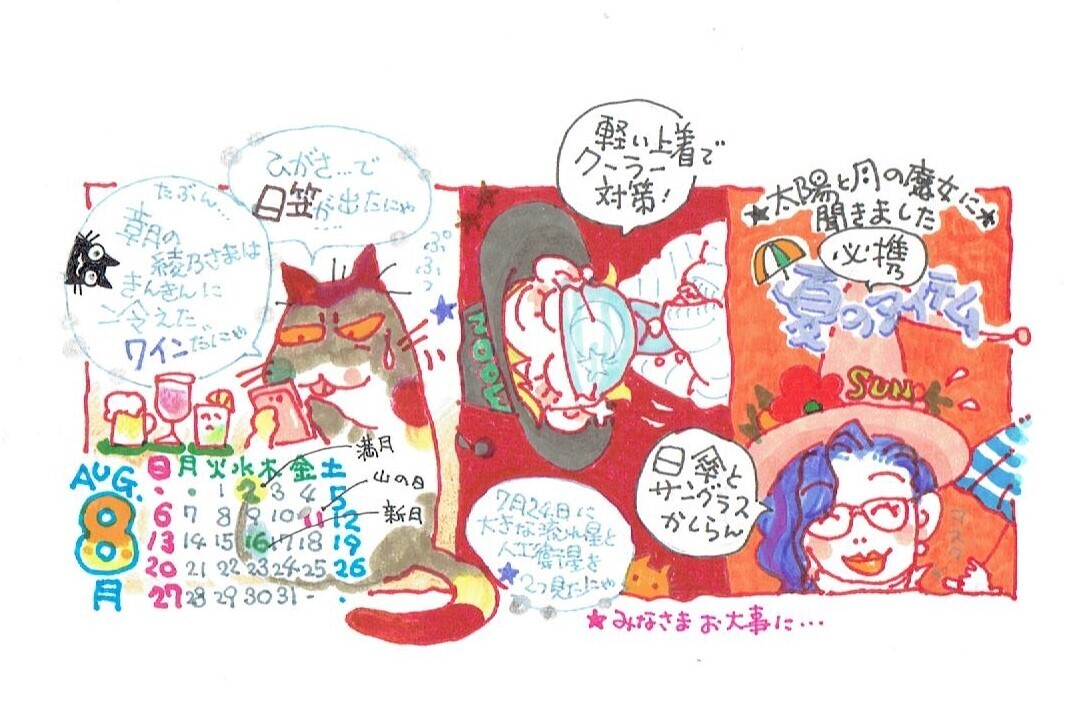 ★太陽と月の魔女に★
聞きました
必携
夏のアイテム
SUN
日傘と
サングラス
かしらん
軽い上着で
クーラー
対策!
MOON
7月24日に
大きな流れ星と
人工衛星を
★2つ見たにゃ
★みなさまお大事に…
ひがさ…で
日笠が出たにゃ
…
ぷぷぷっ
たぶん…
朝の
綾乃さまは
きんきんに
冷えた
ワインだにゃ
AUG.
8
月
日 月 火 水 木 金 土
・ ・ 1 2 3 4 5
6 7 8 9 10 11 12
13 14 15 16 17 18 19
20 21 22 23 24 25 26
27 28 29 30 31 - ・
満月
山の日
新月